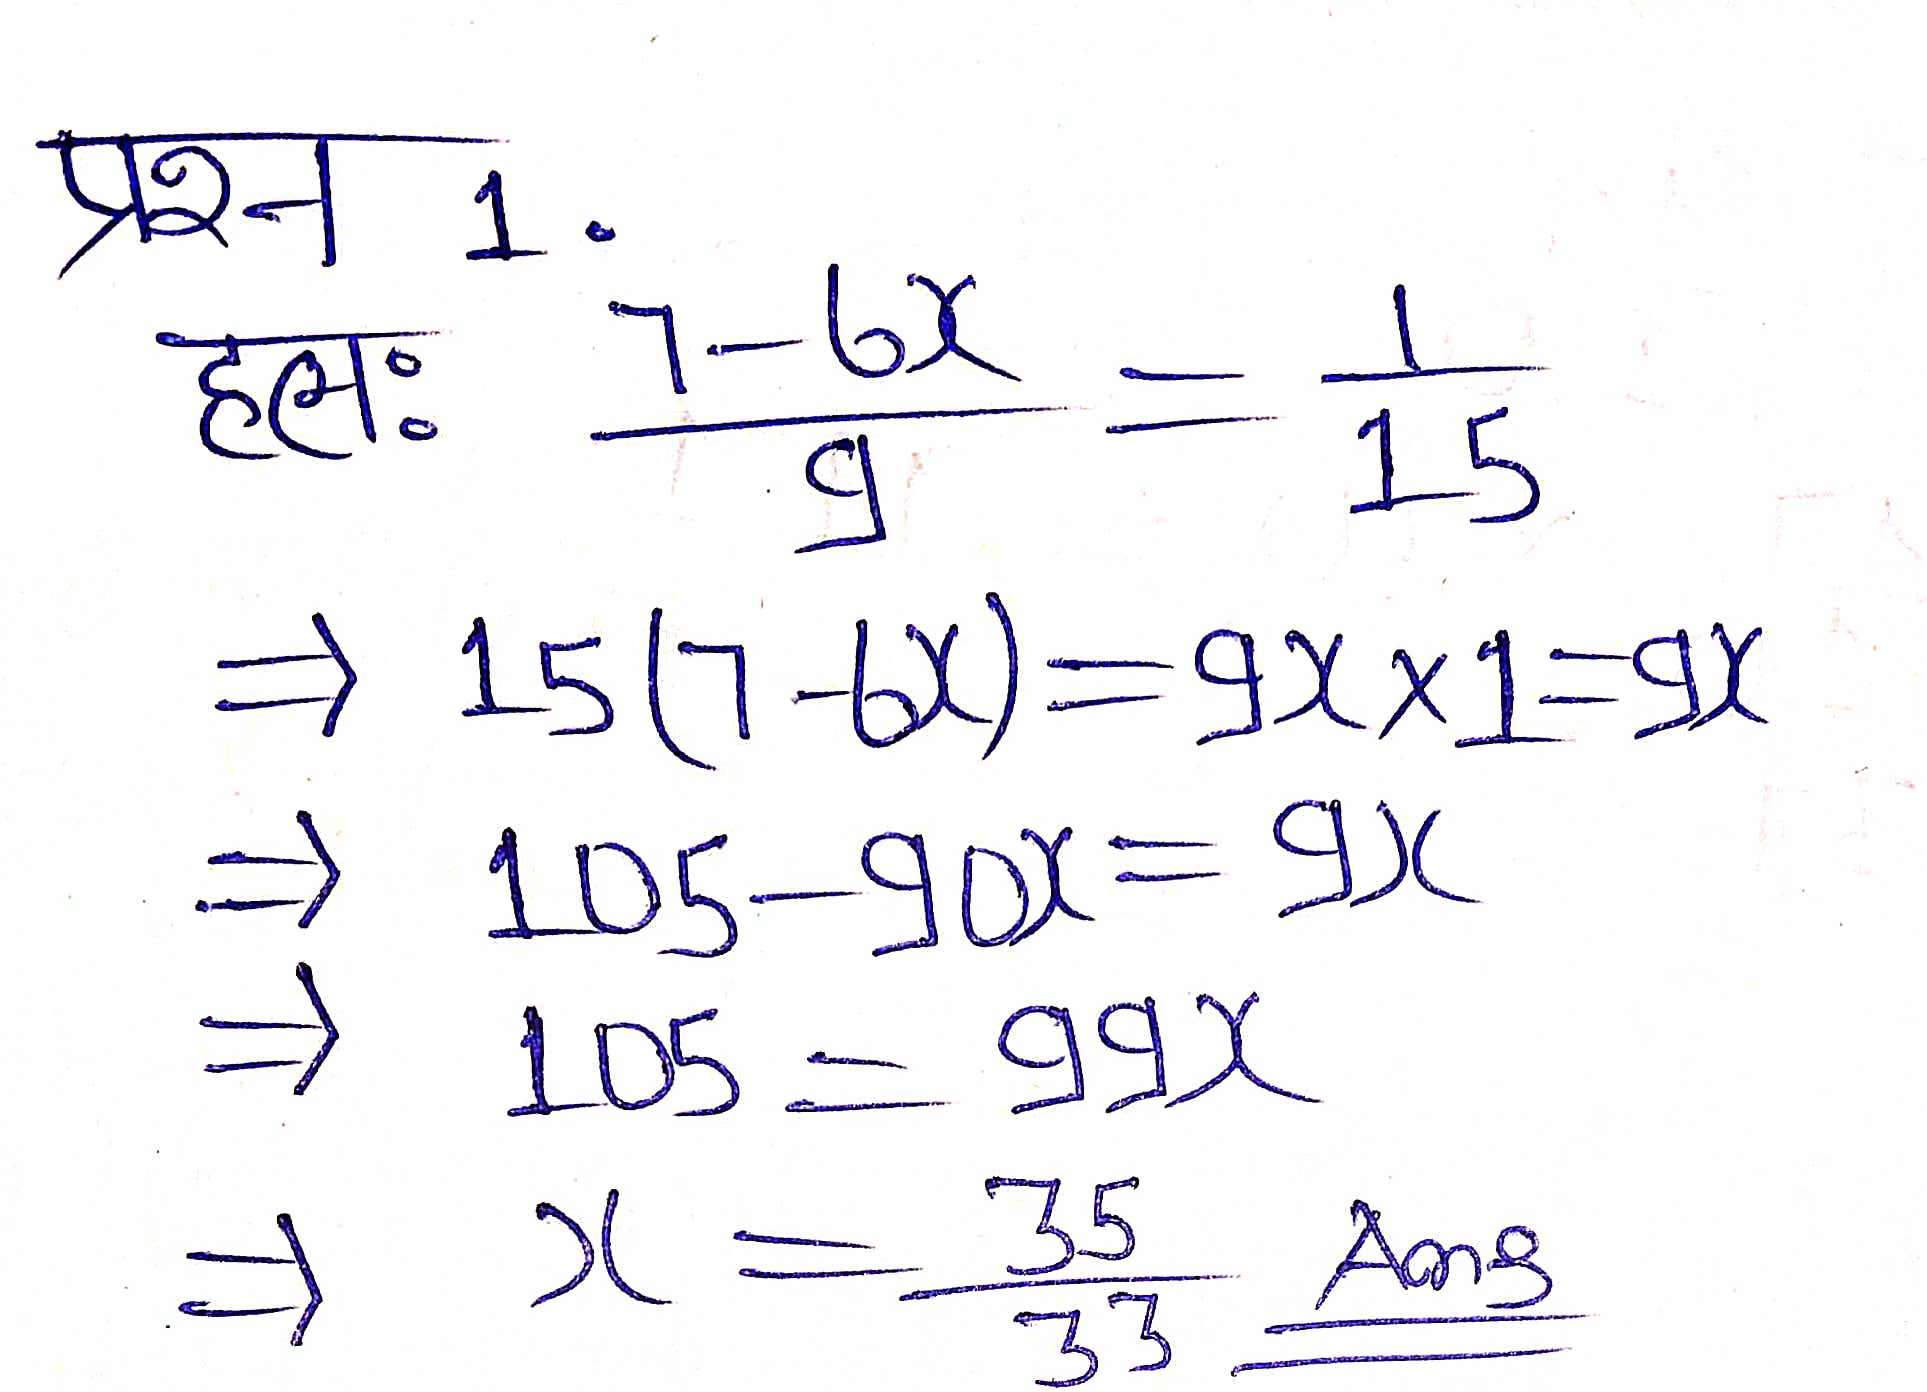 प्रश्न 1.
हलः (7-6x)/9 = 1/15
⇒ 15(7-6x)=9x×1=9x
⇒ 105-90x=9x
⇒ 105=99x
⇒ x=35/33 Ans